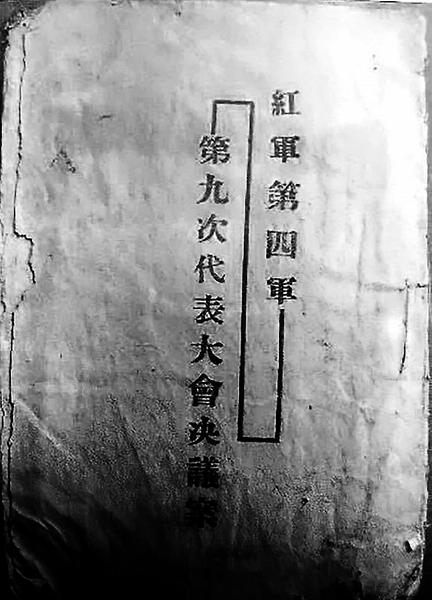 紅軍第四軍
第九次代表大會決議案